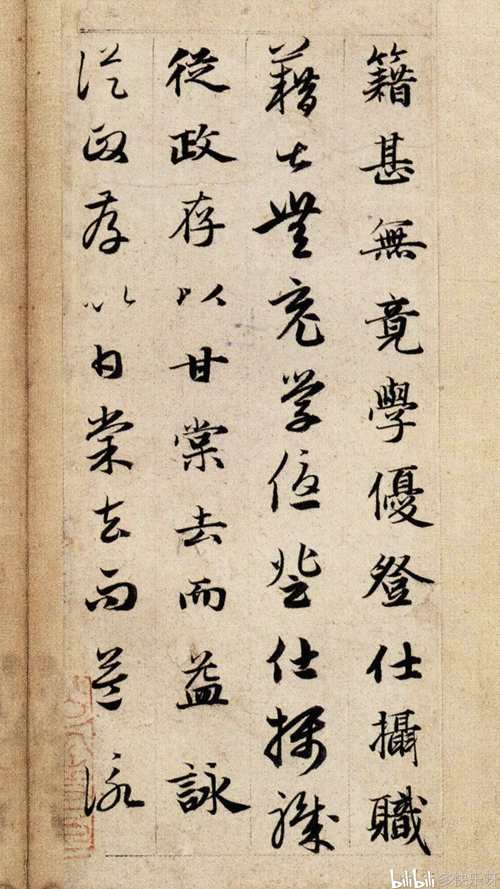 籍甚無竟學優登仕攝職
藉甚無竟學優登仕攝職
從政存以甘棠去而益詠
從政存以甘棠去而益詠
bilibili